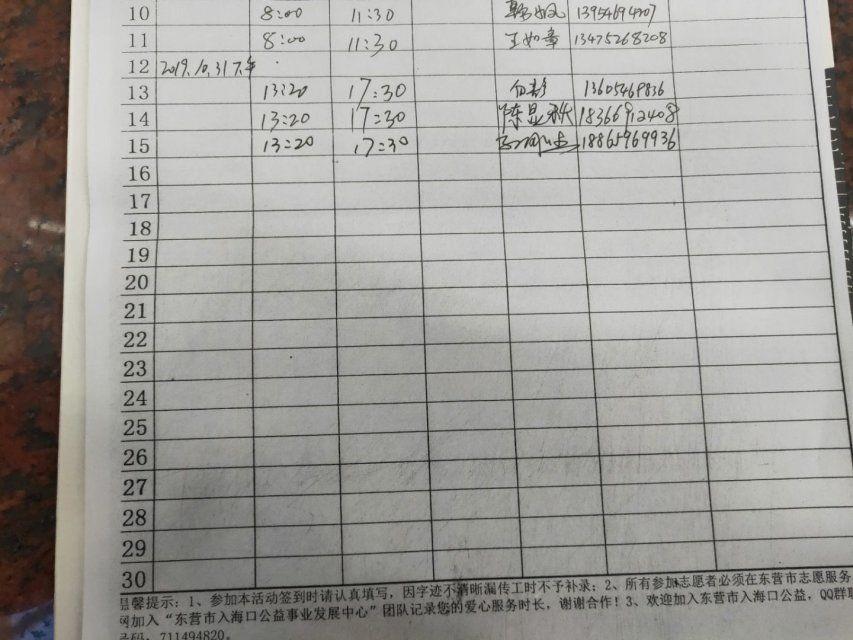 10 8:00 11:30
11 8:00 11:30 王如章 13475268208
12 2019.10.31下午
13 13:20 17:30 13605469836
14 13:20 17:30 陈显秋 18366912408
15 13:20 17:30 18865969936
16
17
18
19
20
21
22
23
24
25
26
27
28
29
30
温馨提示：1、参加本活动签到时请认真填写，因字迹不清晰漏传工时不予补录；2、所有参加志愿者必须在东营市志愿服务
网加入“东营市入海口公益事业发展中心”团队记录您的爱心服务时长，谢谢合作！3、欢迎加入东营市入海口公益，QQ群联
号码：711494820。